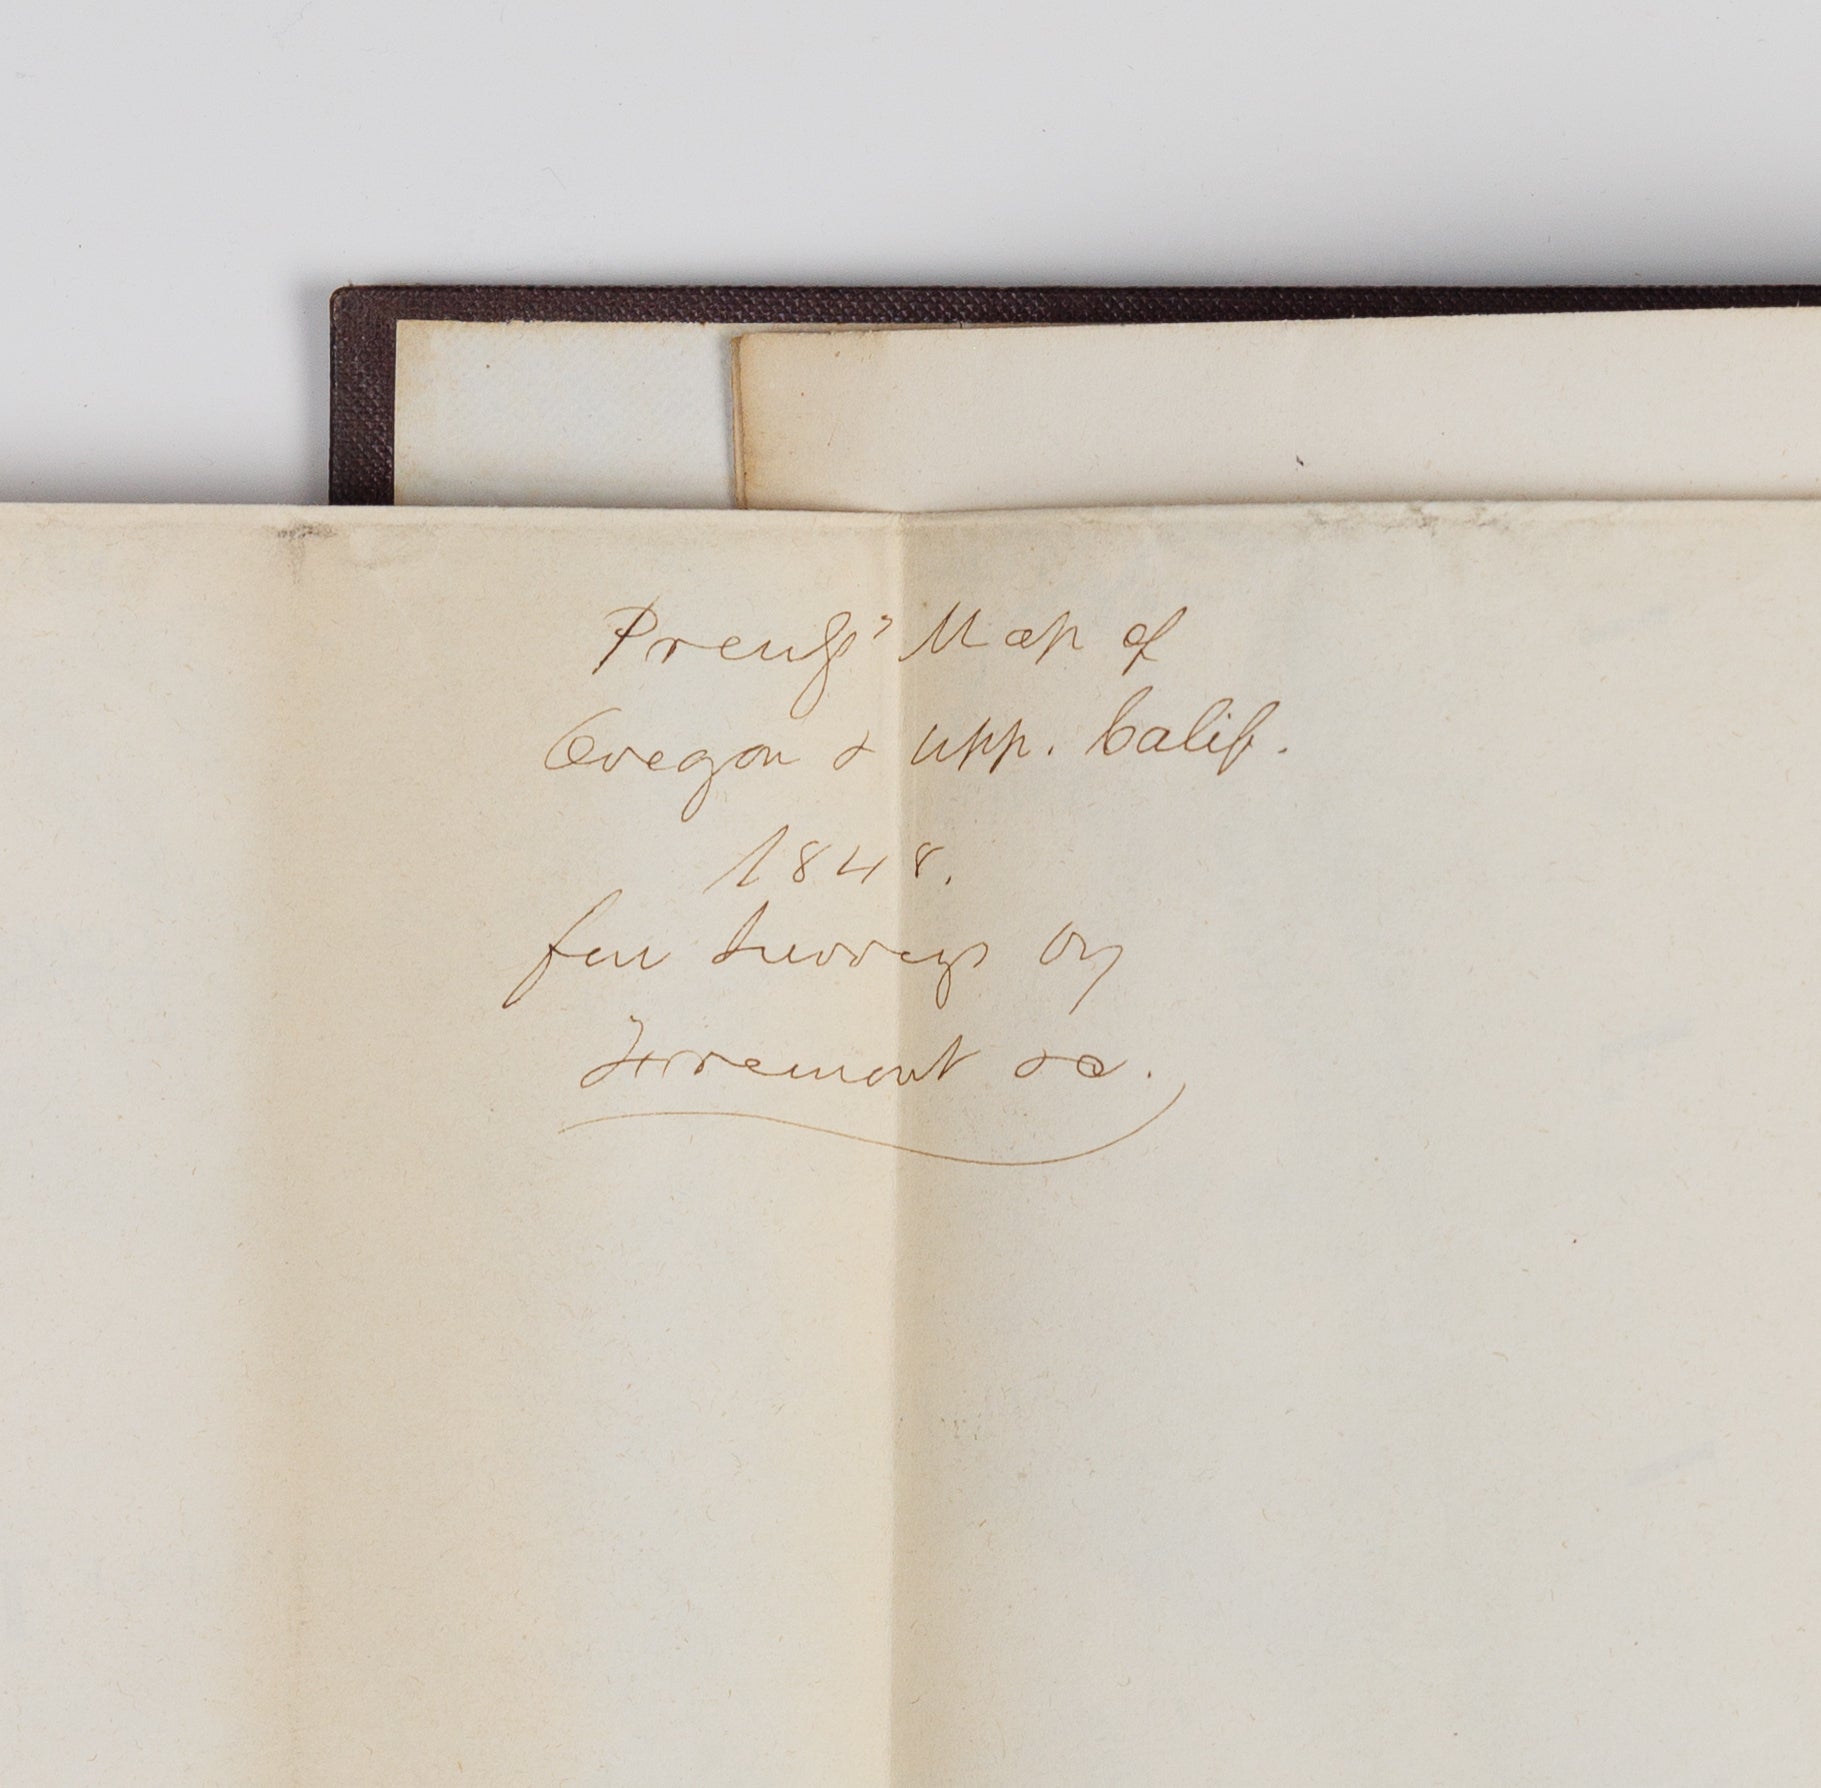 Preuſs' Map of
Oregon & upp. Calif.
1848.
surveys by
Frremont &c.